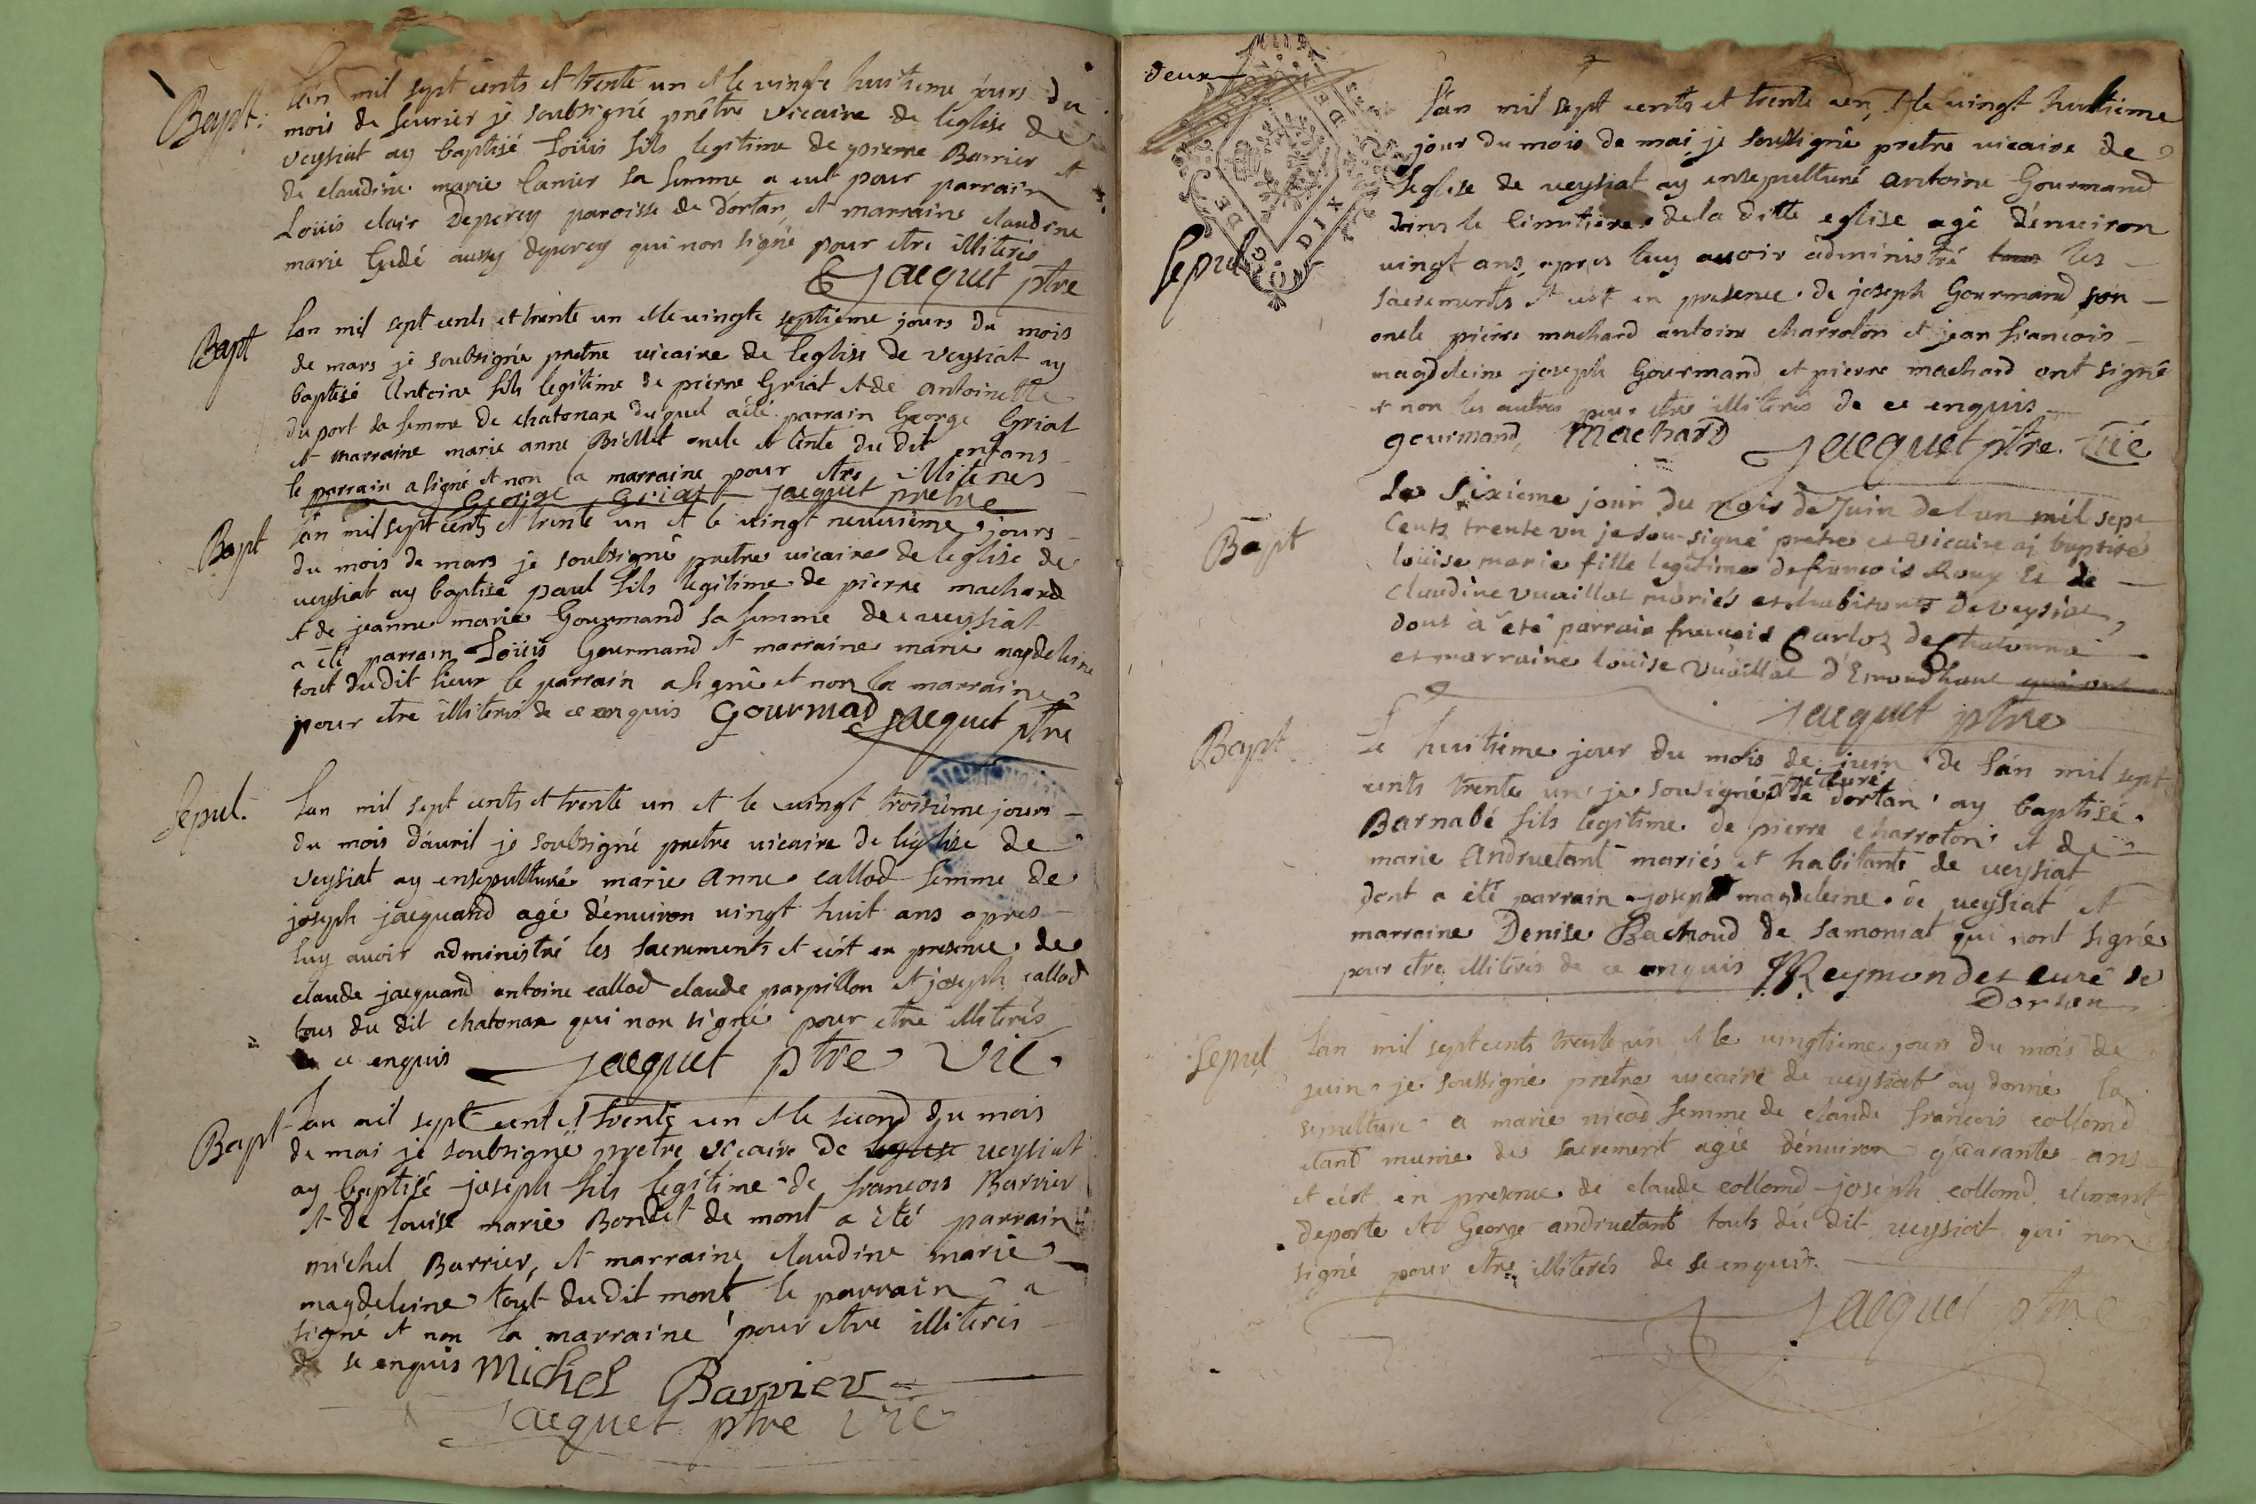 Bapt: lan mil sept cents et trente un et le vingt huitieme jours du
mois de fevrier je soubsigné prêtre vicaire de leglise de
veysiat ay baptisé Loüis fils legitime de pierre Barrier et
de claudine marie Lanier sa femme a eut pour parrain
Loüis clair Deperey paroisse de dortan, et marraine claudine
marie aussy deperey qui non signé pour etre illiteris
Jacquet ptre
Bapt lan mil sept cents et trente un et le vingte septieme jours du mois
de mars je soubsigné pretre vicaire de leglise de veysiat ay
baptisé Antoine fils legitime de pierre Griat et de antoinette
du port sa femme de chatonax duquel a été parrain George Griat
et marraine marie anne oncle et tente du dit enfans
le parrain a signé et non la marraine pour etre illiteres
George Griat Jacquet pretre
Bapt lan mil sept cents et trente un et le vingt neuvieme jours
du mois de mars je soubsigné pretre vicaire de leglise de
veysiat ay baptisé paul fils legitime de pierre machard
et de jeanne marie Gourmand sa femme de veysiat
a été parrain Loüis Gourmand et marraine marie magdeleine
tout du dit lieux le parrain a signé et non la marraine
pour etre illiteris de ce enquis Gourmad Jacquet ptre
Sepul. lan mil sept cents et trente un et le vingt troisieme jours
du mois d'avril je soubsigné pretre vicaire de léglise de
veysiat ay ensepulturé marie Anne callod femme de
joseph jacquand agé dénviron vingt huit ans apres
luy avoir administré les sacrements et cést en presence de
claude jacquand antoine callod claude parpillon et joseph callod
tous du dit chatonax qui non signé pour etre illiteris
de ce enquis Jacquet ptre Vic
Bapt lan mil sept cent et trente un et le second du mois
de mai je soubsigné pretre vicaire de leglise veysiat
ay baptisé joseph fils legitime de francois Barrier
et De louise marie Bondet de mont a été parrain
michel Barrier, et marraine claudine marie
magdeleine tout du dit mont le parrain a
signé et non la marraine pour etre illiteris
de se enquis Michel Barrier
Jacquet ptre vic
deux
DE DIX DE
Sepul
lan mil sept cents et trente un, et le vingt huitieme
jour du mois de mai je soussigné pretre vicaire de
leglise de veysiat ay ensepulturé antoine Gourmand
dans le cimitiere de la ditte eglise agé dénviron
vingt ans, apres luy avoir administré tous les
sacrements et cést en presence de joseph Gourmand son
oncle pierre machard antoine charroton et jean francois
magdeleine joseph Gourmand et pierre machard ont signé
et non les autres pour etre illiteris de ce enquis
gourmand, Machard Jacquet ptre. vic
Bapt Le Sixieme jour du mois de Juin de l'an mil sept
Cents trente un je sousigné pretre et vicaire aj baptisé
loüise marie fille legitime de francois Roux et de
Claudine vuaillat mariés et habitants De veysiat,
dont à été parrain francois Carloz de Chatonna
et marraine loüise Vüaillat d'Emondhaut qui ont
Jacquet ptre
Bapt Le huitieme jour du mois de juin de lán mil sept
cents trente un je sousigné ptre curé de dortan ay baptisé
Barnabé fils legitime de pierre charroton et de
marie Andruetant mariés et habitants de veysiat
dont a été parrain joseph magdeleine de veysiat et
marraine Denise Bachoud de Samoniat qui nont signé
pour etre illiteris de ce enquis Reymondet curé de
Dortan
Sepul lan mil sept cents trente un et le vingtieme jours du mois de
juin je soussigné pretre vicaire de veysiat ay donné la
sepulture a marie nicod femme de claude francois collomd
etant munie des sacrement agée dénviron qúarante ans
et cést en presence de claude collomd joseph collomd clemant
deporte et George andruetant touts dú dit veysiat qui non
signé pour etre illiterés de se enquis.
Jacquet ptre